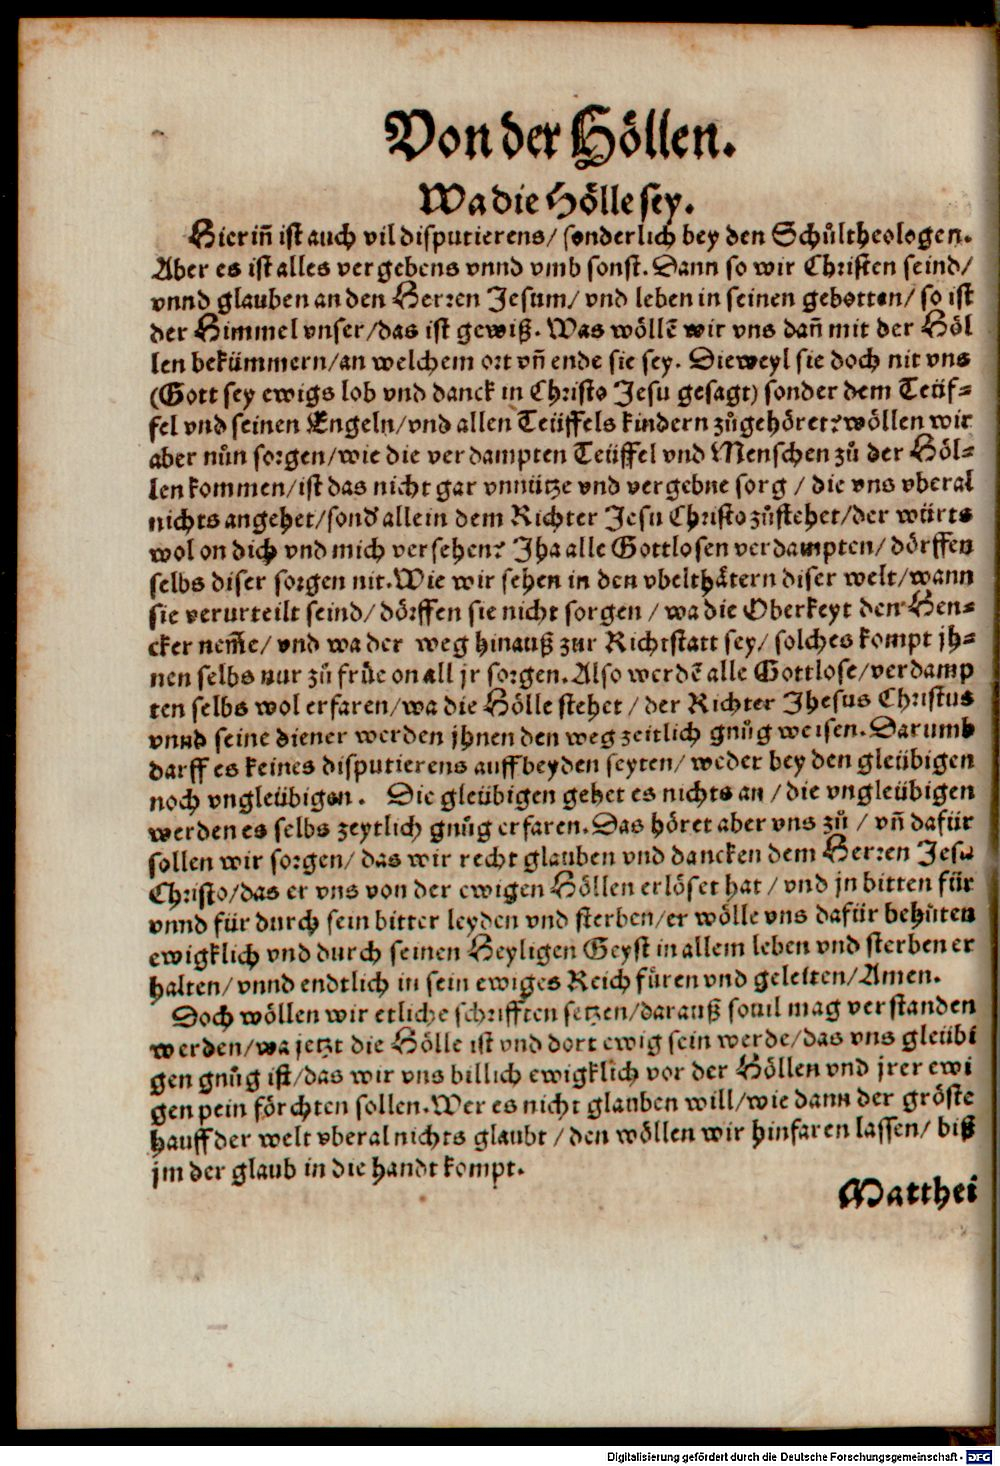 Von der Höllen.
Wa die Hölle sey.
Hierin̄ ist auch vil disputierens/ sonderlich bey den Schůltheologen.
Aber es ist alles vergebens vnnd vmb sonst. Dann so wir Christen seind/
vnnd glauben an den Herren Jesum/ vnd leben in seinen gebotten/ so ist
der Himmel vnser/ das ist gewiß. Was wöllē wir vns dan̄ mit der Höl
len bekümmern/ an welchem ort vn̄ ende sie sey. Dieweyl sie doch nit vns
(Gott sey ewigs lob vnd danck in Christo Jesu gesagt) sonder dem Teüf-
fel vnd seinen Engeln/ vnd allen Teüffels kindern zůgehöret? wöllen wir
aber nůn sorgen/ wie die verdampten Teüffel vnd Menschen zů der Höl-
len kommen/ ist das nicht gar vnnütze vnd vergebne sorg / die vns vberal
nichts angehet/ sond' allein dem Richter Jesu Christo zůstehet/ der würts
wol on dich vnd mich versehen? Jha alle Gottlosen verdampten/ dörffen
selbs diser sorgen nit. Wie wir sehen in den vbelthätern diser welt/ wann
sie verurteilt seind/ dörffen sie nicht sorgen / wa die Oberkeyt den Hen-
cker nem̄e/ vnd wa der weg hinauß zur Richtstatt sey/ solches kompt jh-
nen selbs nur zů früe on all jr sorgen. Also werdē alle Gottlose/ verdamp
ten selbs wol erfaren/ wa die Hölle stehet / der Richter Jhesus Christus
vnnd seine diener werden jhnen den weg zeitlich gnůg weisen. Darumb
darff es keines disputierens auff beyden seyten/ weder bey den gleübigen
noch vngleübigen. Die gleübigen gehet es nichts an / die vngleübigen
werden es selbs zeytlich gnůg erfaren. Das höret aber vns zů / vn̄ dafür
sollen wir sorgen/ das wir recht glauben vnd dancken dem Herren Jesu
Christo/ das er vns von der ewigen Höllen erlöset hat / vnd jn bitten für
vnnd für durch sein bitter leyden vnd sterben/ er wölle vns dafür behüten
ewigklich vnd durch seinen Heyligen Geyst in allem leben vnd sterben er
halten/ vnnd endtlich in sein ewiges Reich füren vnd geleiten/ Amen.
Doch wöllen wir etliche schrifften setzen/ darauß souil mag verstanden
werden/ wa jetzt die Hölle ist vnd dort ewig sein werde/ das vns gleübi
gen gnůg ist/ das wir vns billich ewigklich vor der Höllen vnd jrer ewi
gen pein förchten sollen. Wer es nicht glauben will/ wie dann der gröste
hauff der welt vberal nichts glaubt / den wöllen wir hinfaren lassen/ biß
jm der glaub in die handt kompt.
Matthei
Digitalisierung gefördert durch die Deutsche Forschungsgemeinschaft - DFG